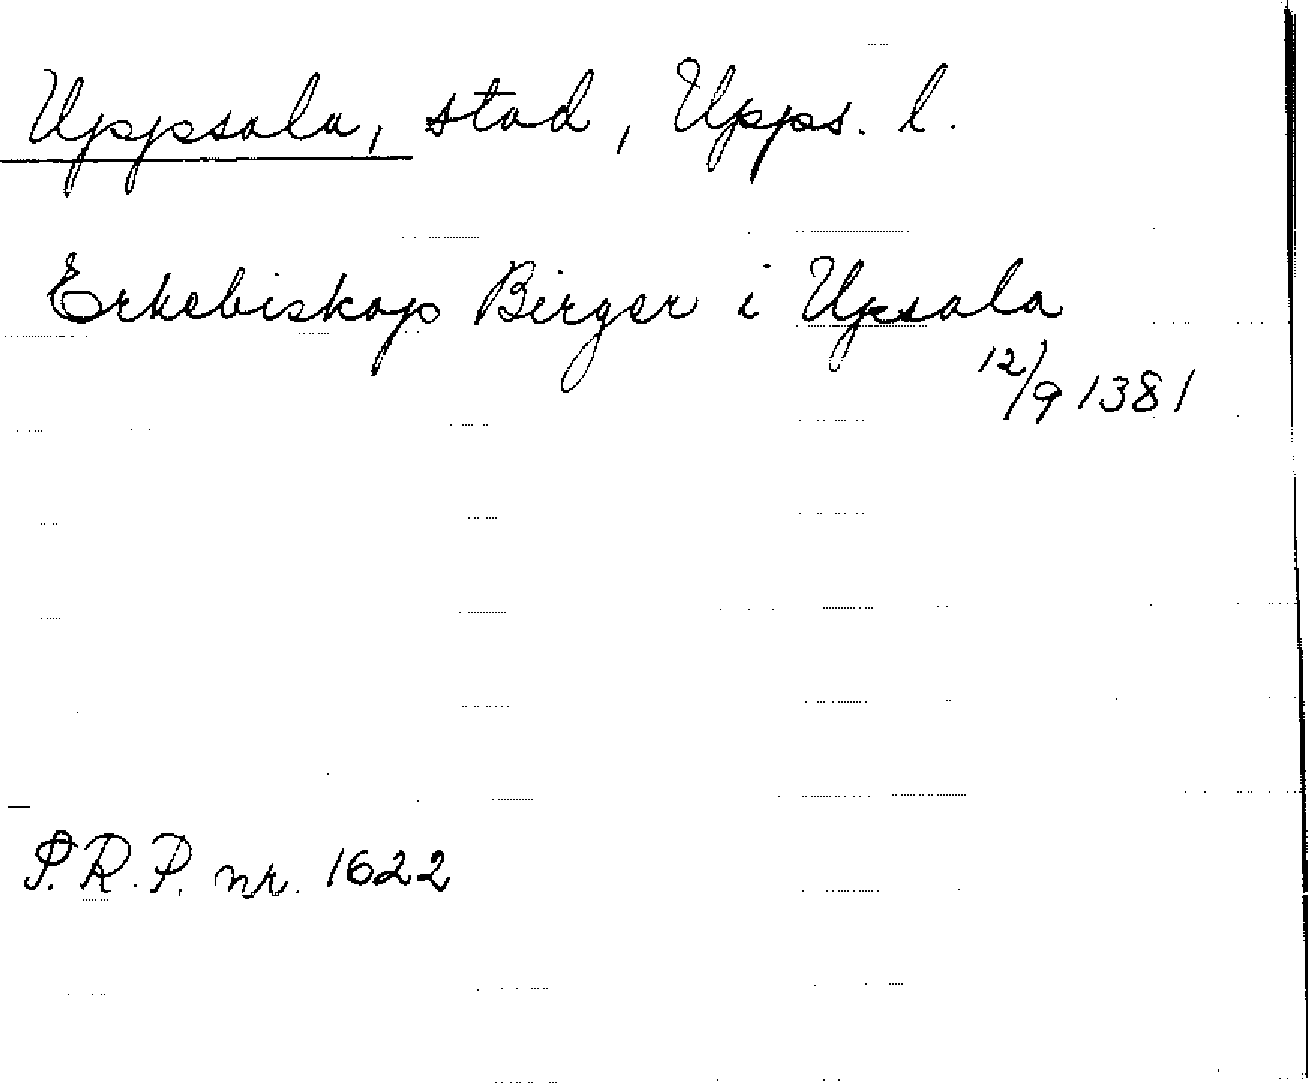 Uppsala, stad, Upps. l.
Erkebiskop Birger i Upsala
12/9 1381
S.R.P. nr. 1622